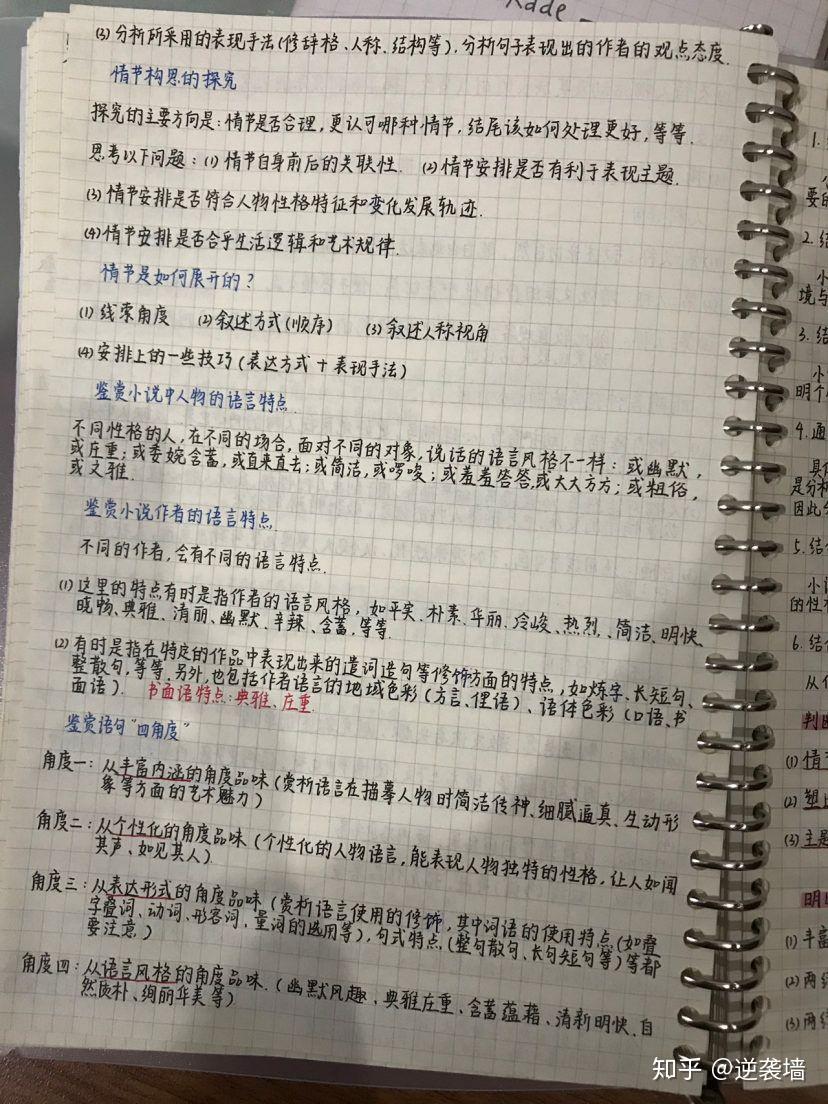 Kade
(3) 分析所采用的表现手法(修辞格、人称、结构等),分析句子表现出的作者的观点态度.
情节构思的探究
探究的主要方向是:情节是否合理,更认可哪种情节,结尾该如何处理更好,等等.
思考以下问题:(1) 情节自身前后的关联性. (2) 情节安排是否有利于表现主题.
(3) 情节安排是否符合人物性格特征和变化发展轨迹.
(4) 情节安排是否合乎生活逻辑和艺术规律.
情节是如何展开的?
(1) 线索角度 (2) 叙述方式(顺序) (3) 叙述人称视角
(4) 安排上的一些技巧(表达方式+表现手法)
鉴赏小说中人物的语言特点.
不同性格的人,在不同的场合,面对不同的对象,说话的语言风格不一样:或幽默,
或庄重;或委婉含蓄,或直来直去;或简洁,或啰唆;或羞羞答答,或大大方方;或粗俗,
或文雅.
鉴赏小说作者的语言特点.
不同的作者,会有不同的语言特点.
(1) 这里的特点有时是指作者的语言风格,如平实、朴素、华丽、冷峻、热烈、简洁、明快、
晓畅、典雅、清丽、幽默、辛辣、含蓄,等等.
(2) 有时是指在特定的作品中表现出来的遣词造句等修饰方面的特点,如炼字、长短句、
整散句,等等.另外,也包括作者语言的地域色彩(方言、俚语)、语体色彩(口语、书
面语). 书面语特点:典雅、庄重.
鉴赏语句“四角度”
角度一:从丰富内涵的角度品味(赏析语言在描摹人物时简洁传神、细腻逼真、生动形
象等方面的艺术魅力)
角度二:从个性化的角度品味(个性化的人物语言,能表现人物独特的性格,让人如闻
其声、如见其人).
角度三:从表达形式的角度品味(赏析语言使用的修饰,其中词语的使用特点(如叠
字叠词、动词、形容词、量词的选用等),句式特点(整句散句、长句短句等)等都
要注意.)
角度四:从语言风格的角度品味.(幽默风趣、典雅庄重、含蓄蕴藉、清新明快、自
然质朴、绚丽华美等)
1.
要的
2. 结
小
境与
3. 结
小
明个
4. 通
具
是分析
因此
5. 结
小说
的性
6. 结
从
判断
(1) 情
(2) 塑
(3) 主题
明
(1) 丰富
(2) 两
(3) 两
知乎 @逆袭墙